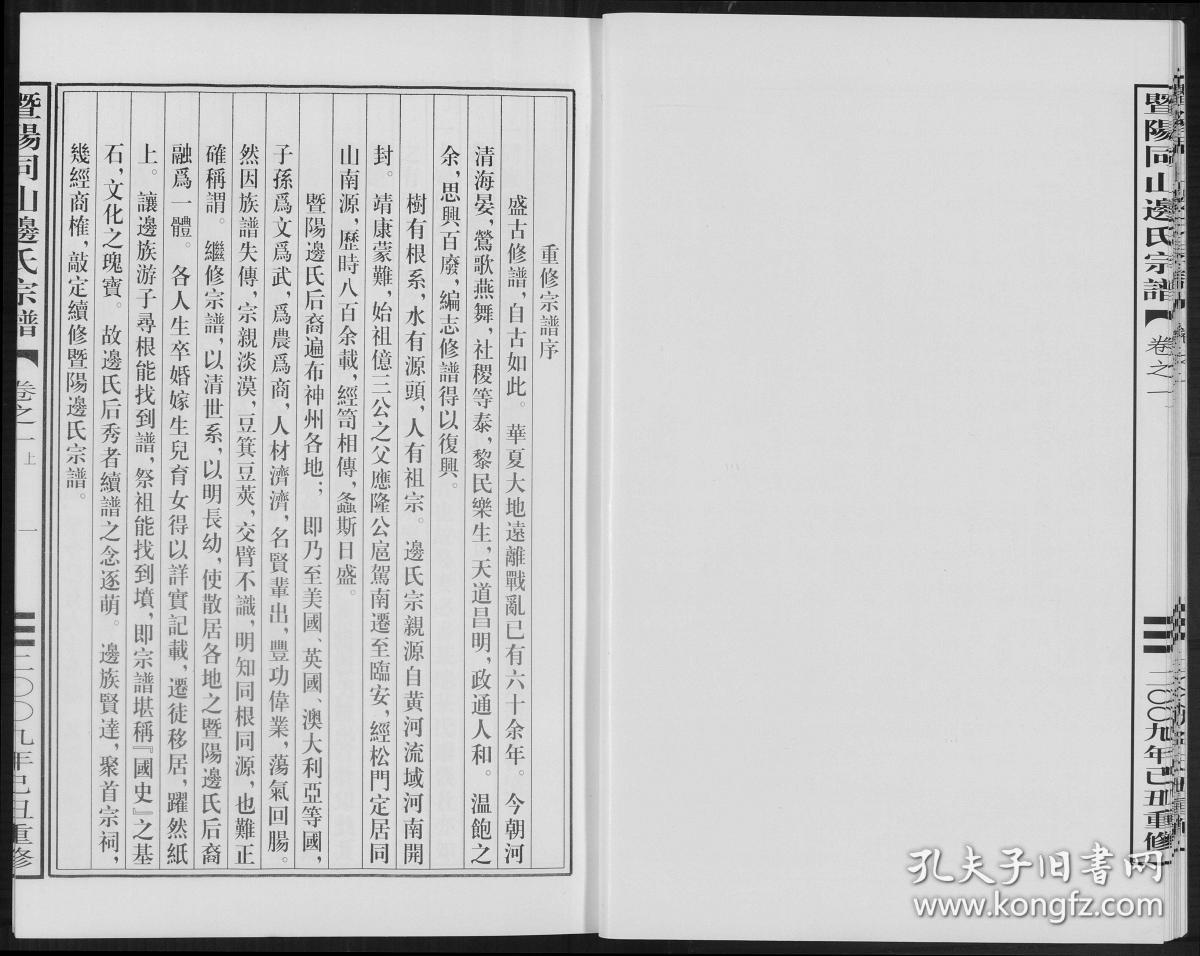 暨陽同山邊氏宗譜
卷之一
二〇〇九年己丑重修
重修宗譜序
盛古修譜，自古如此。華夏大地遠離戰亂已有六十余年。今朝河
清海晏，鶯歌燕舞，社稷等泰，黎民樂生，天道昌明，政通人和。溫飽之
余，思興百廢，編志修譜得以復興。
樹有根系，水有源頭，人有祖宗。邊氏宗親源自黄河流域河南開
封。靖康蒙難，始祖億三公之父應隆公扈駕南遷至臨安，經松門定居同
山南源，歷時八百余載，經笥相傳，螽斯日盛。
暨陽邊氏后裔遍布神州各地；即乃至美國、英國、澳大利亞等國，
子孫爲文爲武，爲農爲商，人材濟濟，名賢輩出，豐功偉業，蕩氣回腸。
然因族譜失傳，宗親淡漠，豆箕豆莢，交臂不識，明知同根同源，也難正
確稱謂。繼修宗譜，以清世系，以明長幼，使散居各地之暨陽邊氏后裔
融爲一體。各人生卒婚嫁生兒育女得以詳實記載，遷徒移居，躍然紙
上。讓邊族游子尋根能找到譜，祭祖能找到墳，即宗譜堪稱『國史』之基
石，文化之瑰寶。故邊氏后秀者續譜之念逐萌。邊族賢達，聚首宗祠，
幾經商榷，敲定續修暨陽邊氏宗譜。
暨陽同山邊氏宗譜
卷之一上
一
二〇〇九年己丑重修
孔夫子旧书网
www.kongfz.com